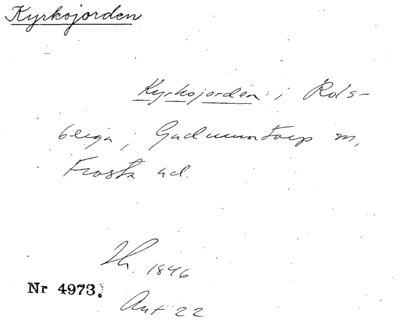 Kyrkojorden
Kyrkojorden i Röls-
berga, Gudmuntorp sn,
Frosta hd.
Th. 1846
Nr 4973.
Ant 22